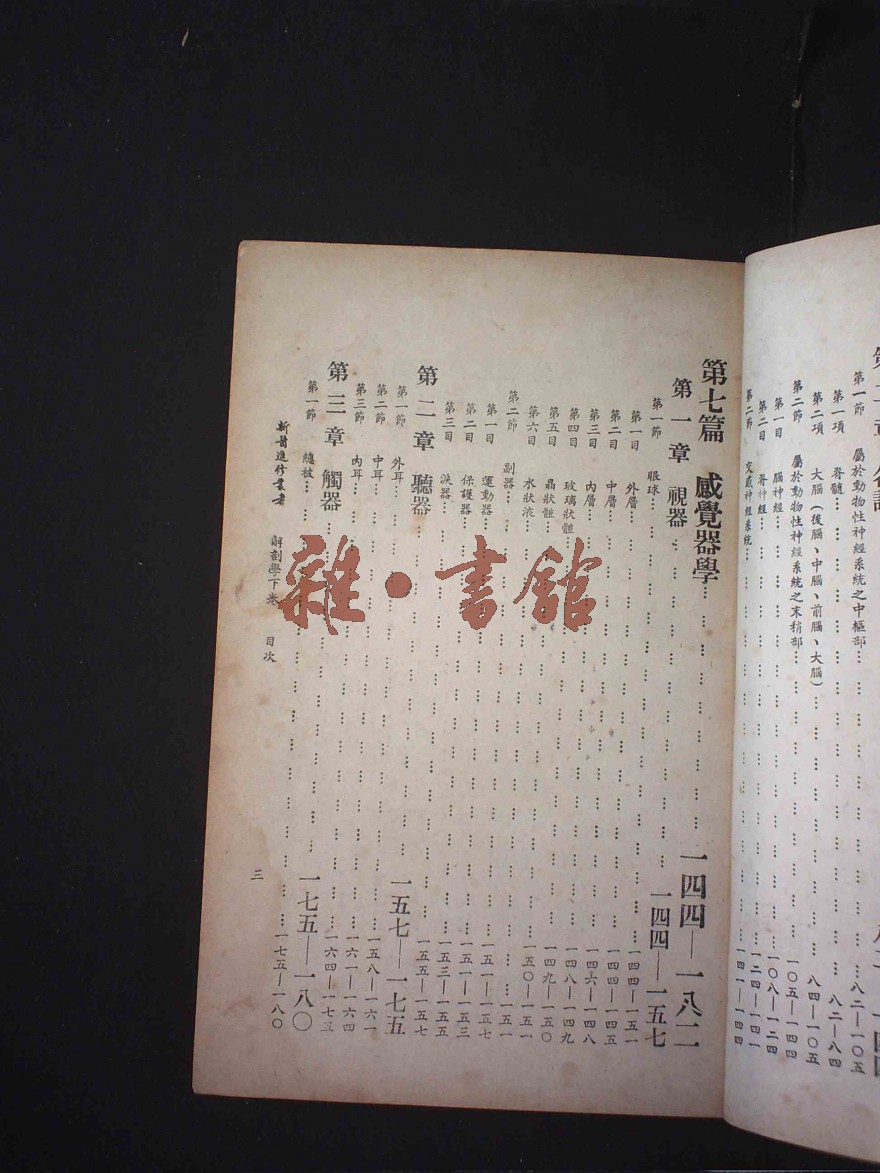 第一節 屬於動物性神經系統之中樞部…八二—一〇五
第一項 脊髓…八二—八四
第二項 大腦(後腦、中腦、前腦、大腦)…八四—一〇五
第二節 屬於動物性神經系統之末稍部…一〇五—一四四
第一目 腦神經…一〇八—一二四
第二目 脊神經…一二四—一四一
第二節 交感神經系統…一四一—一四四
第七篇 感覺器學…一四四—一八二
第一章 視器…一四四—一五七
第一節 眼球…一四四—一五一
第一目 外層…一四四—一四五
第二目 中層…一四四—一四五
第三目 內層…一四六—一四八
第四目 玻璃狀體…一四八—一四九
第五目 晶狀體…一四九—一五〇
第六目 水狀液…一五〇—一五一
第二節 副器…一五一
第一目 運動器…一五一—一五七
第二目 保護器…一五一—一五三
第三目 淚器…一五三—一五五
第二章 聽器…一五五—一五七
第一節 外耳…一五七—一七五
第二節 中耳…一五八—一六一
第三節 內耳…一六一—一六四
第三章 觸器…一六四—一七五
第一節 總被…一七五—一八〇
一七五—一八〇
新醫進修叢書 解剖學下卷 目次
三
雜·書館